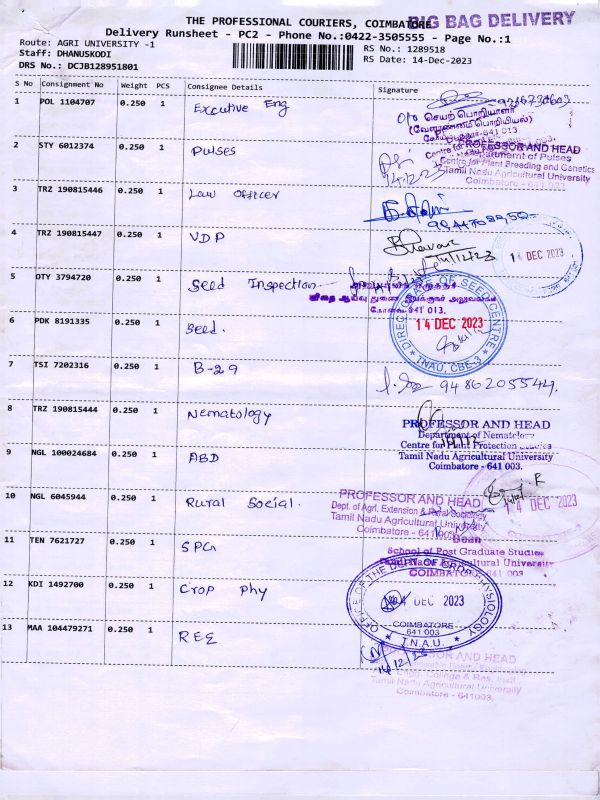 THE PROFESSIONAL COURIERS, COIMBATORE
BIG BAG DELIVERY
Delivery Runsheet - PC2 - Phone No.:0422-3505555 - Page No.:1
Route: AGRI UNIVERSITY -1
RS No.: 1289518
Staff: DHANUSKODI
RS Date: 14-Dec-2023
DRS No.: DCJB128951801
S No Consignment No Weight PCS Consignee Details Signature
1 POL 1104707 0.250 1 Excutive Eng
செயற் பொறியாளர்
(வேளாண்மைப் பொறியியல்)
2 STY 6012374 0.250 1 Pulses
PROFESSOR AND HEAD
Department of Pulses
Centre for Plant Breeding and Genetics
Tamil Nadu Agricultural University
Coimbatore-641 003.
14.12.23
3 TRZ 190815446 0.250 1 Law officer
4 TRZ 190815447 0.250 1 VDP
14/12/23
14 DEC 2023
5 OTY 3794720 0.250 1 Seed Inspection
விதை ஆய்வு துணை இயக்குநர் அலுவலகம்
கோவை 641 013.
6 PDK 8191335 0.250 1 Seed.
DIRECTORATE OF SEED CENTRE
14 DEC 2023
TNAU, CBE-3
7 TSI 7202316 0.250 1 B-29
9486205544.
8 TRZ 190815444 0.250 1 Nematology
PROFESSOR AND HEAD
Department of Nematology
Centre for Plant Protection Studies
Tamil Nadu Agricultural University
Coimbatore - 641 003.
9 NGL 100024684 0.250 1 ABD
14 DEC 2023
10 NGL 6045944 0.250 1 Rural Social.
PROFESSOR AND HEAD
Dept. of Agrl. Extension & Rural Sociology
Tamil Nadu Agricultural University
Coimbatore - 641
11 TEN 7621727 0.250 1 SPG
Dean
School of Post Graduate Studies
Tamil Nadu Agricultural University
COIMBATORE-641 003
12 KDI 1492700 0.250 1 Crop Phy
OFFICE OF THE
PHYSIOLOGY
14 DEC 2023
COIMBATORE
641 003
T.N.A.U.
13 MAA 104479271 0.250 1 REE
14/12/23
PROFESSOR AND HEAD
Agrl. Engg. College & Res. Instt.,
Tamil Nadu Agricultural University
Coimbatore - 641003.